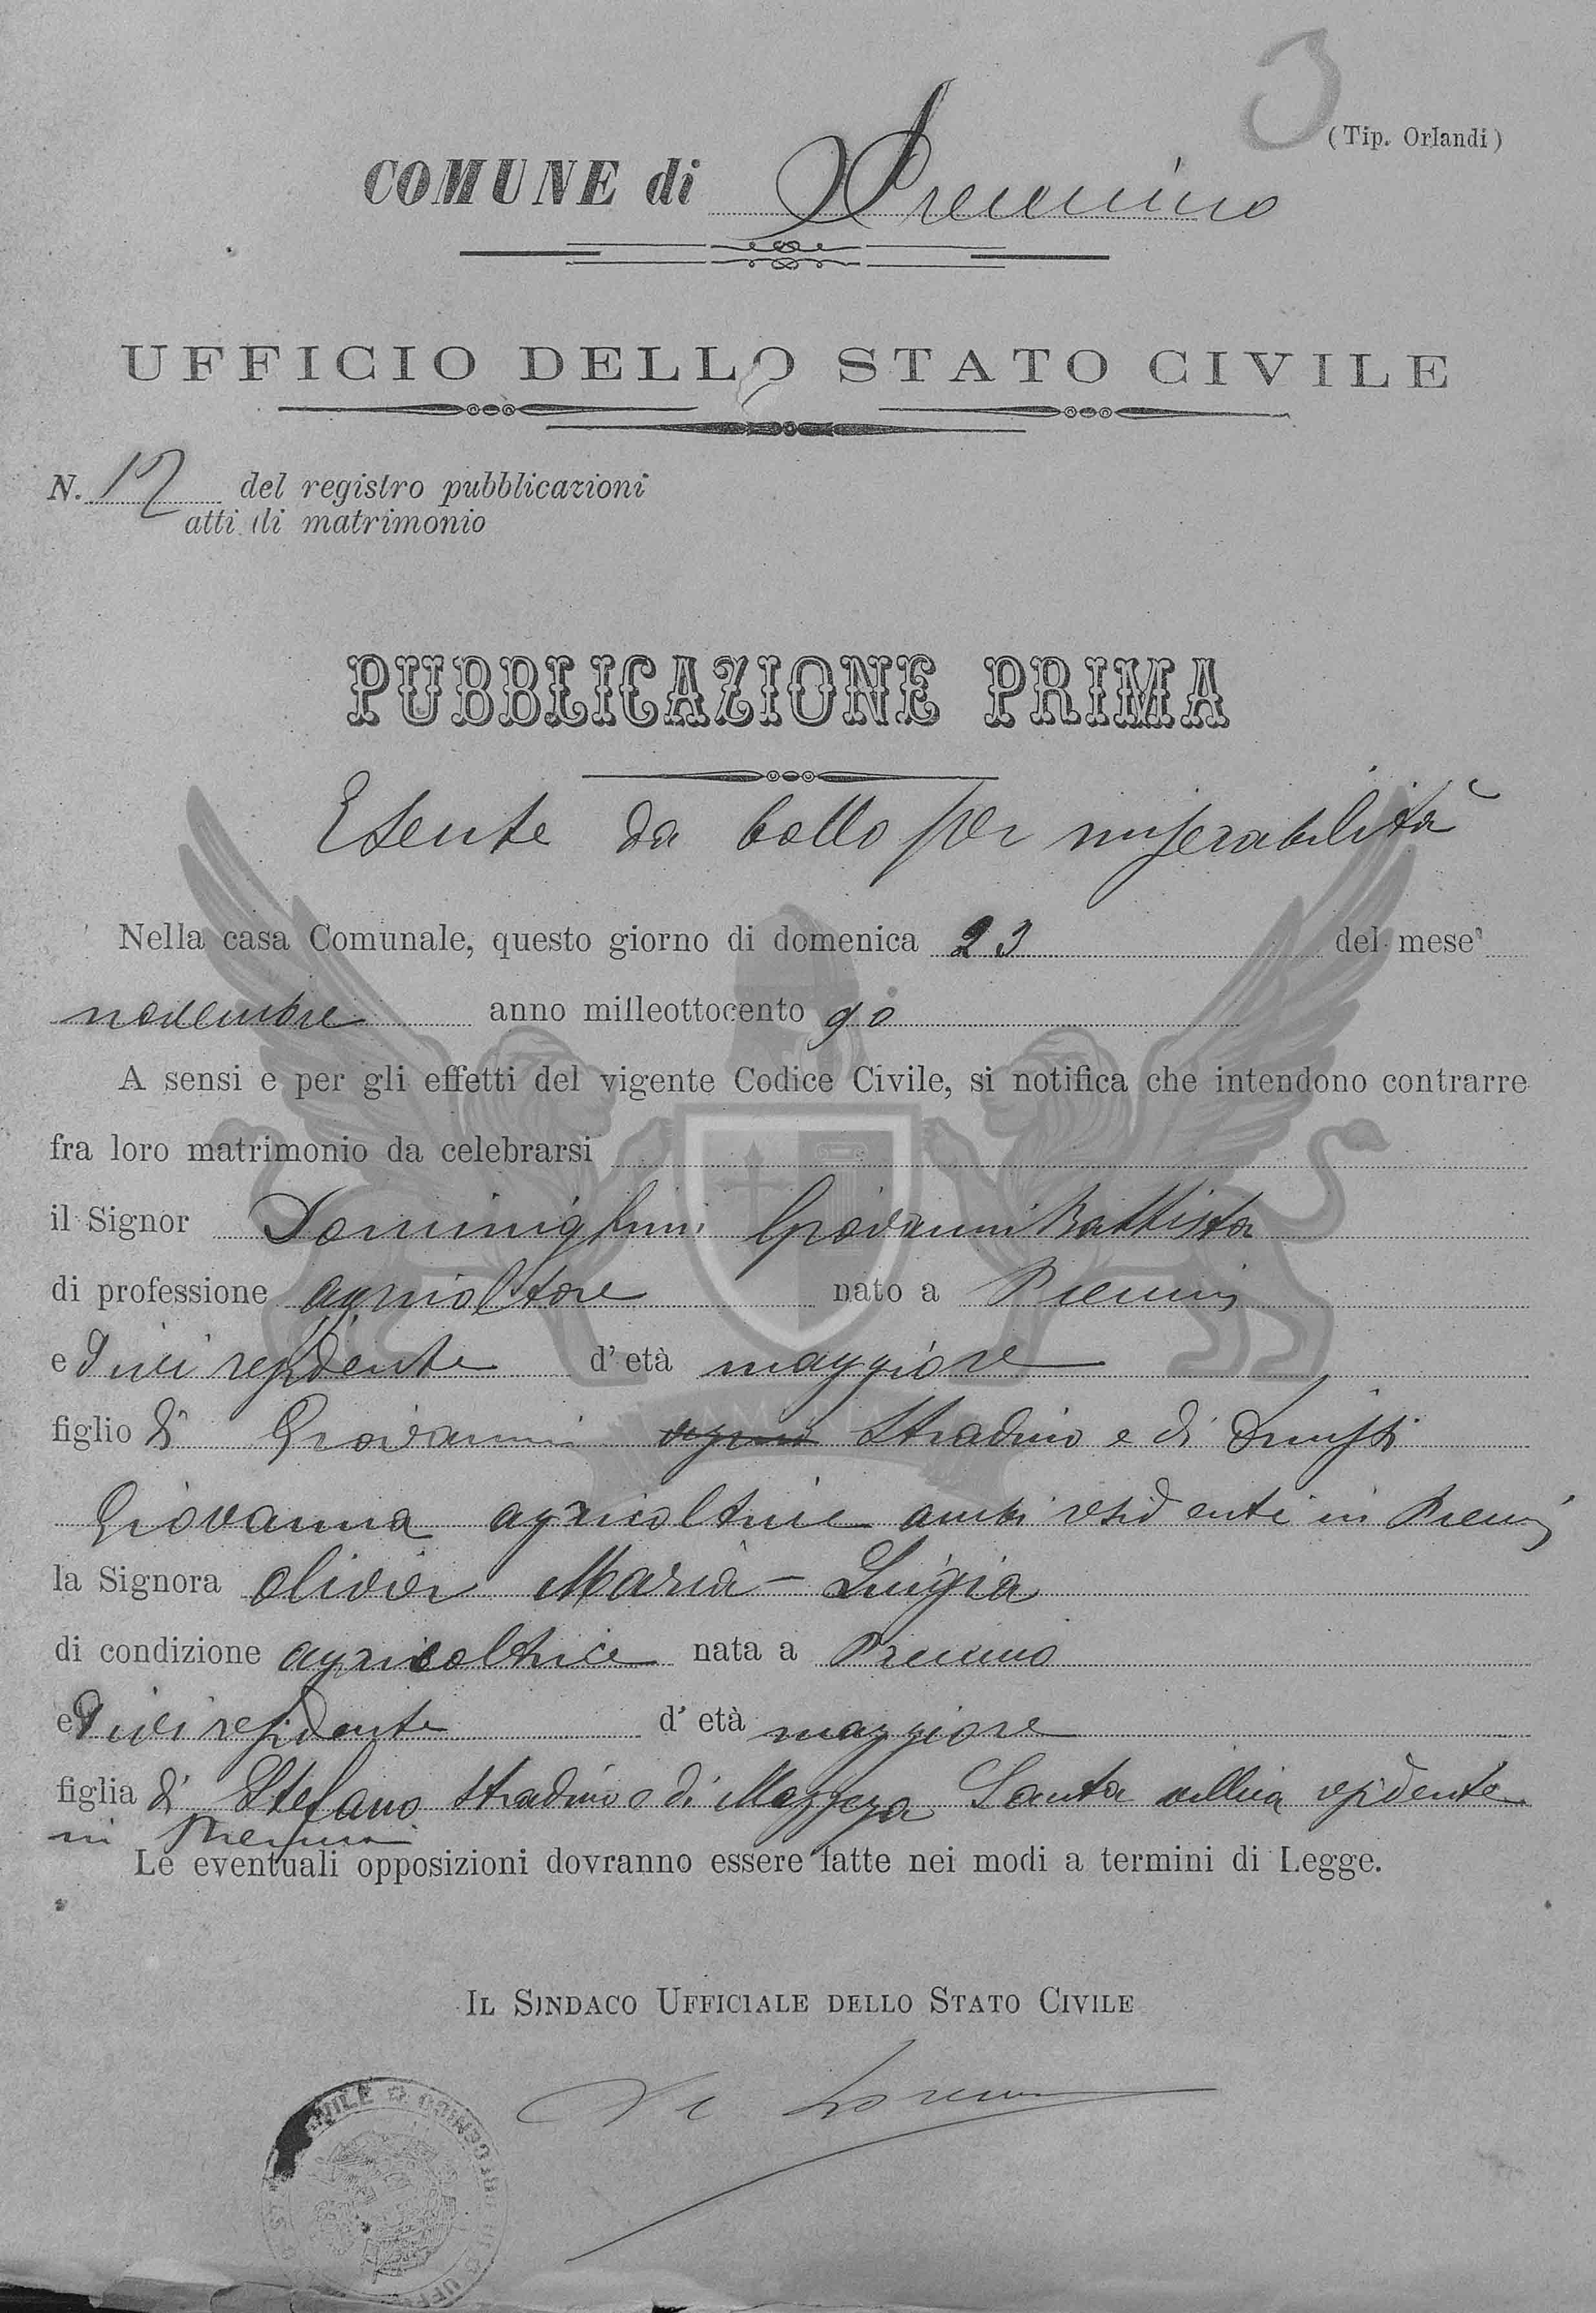 3
(Tip. Orlandi)
COMUNE di Premino
UFFICIO DELLO STATO CIVILE
N. 12 del registro pubblicazioni
atti di matrimonio
PUBBLICAZIONE PRIMA
Esente da bollo per miserabilità
Nella casa Comunale, questo giorno di domenica 23 del mese
novembre anno milleottocento 90
A sensi e per gli effetti del vigente Codice Civile, si notifica che intendono contrarre
fra loro matrimonio da celebrarsi
il Signor Dominighini Giovanni Battista
di professione agricoltore nato a
e quivi residente d' età maggiore
figlio di Giovanni Stradino e di
Giovanna agricoltrice ambi residenti in
la Signora Olivieri Maria - Luigia
di condizione agricoltrice nata a Premino
e quivi residente d' età maggiore
figlia di Stefano stradino e di Mazzera Santa residente
in
Le eventuali opposizioni dovranno essere fatte nei modi a termini di Legge.
IL SINDACO UFFICIALE DELLO STATO CIVILE